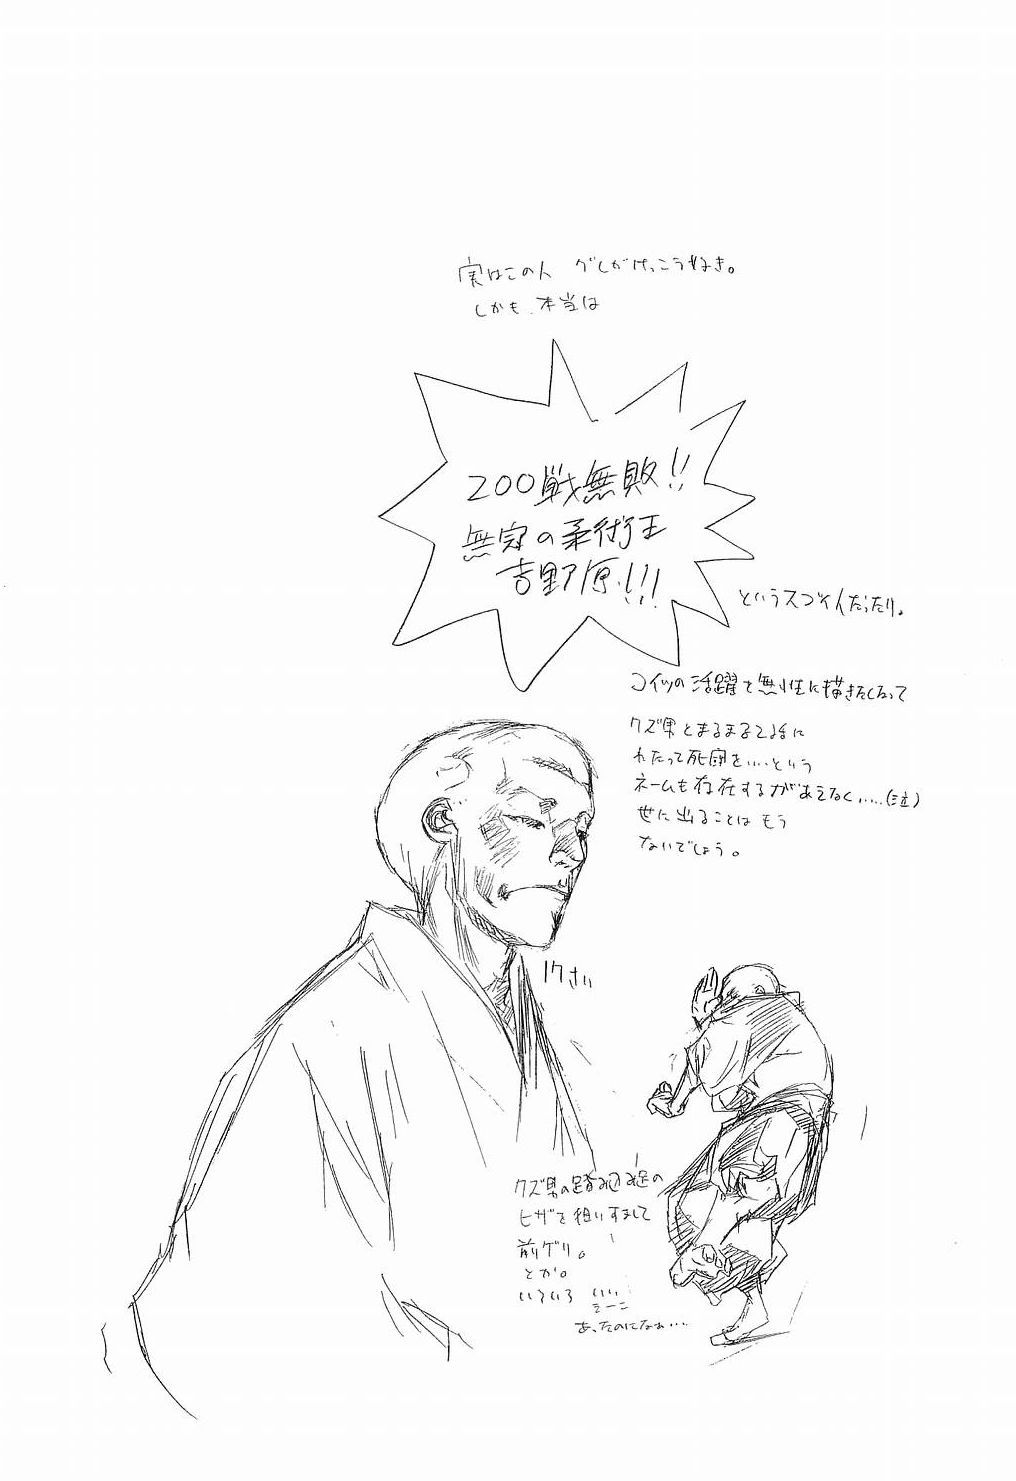 実はこの人 グレがけっこう好き。
しかも、本当は
200戦無敗!!
無冠の柔術王
吉野原!!!
というスゴイ人だったり。
コイツの活躍を無性に描きたくなって
クズ男とまるまる2話に
わたって死闘を...という
ネームも存在するがあえなく.....(泣)
世に出ることはもう
ないでしょう。
17さい
クズ男の踏み込み足の
ヒザを狙いすまして
前ゲリ。
とか。
いろいろ いい
とーこ
あったのになぁ...